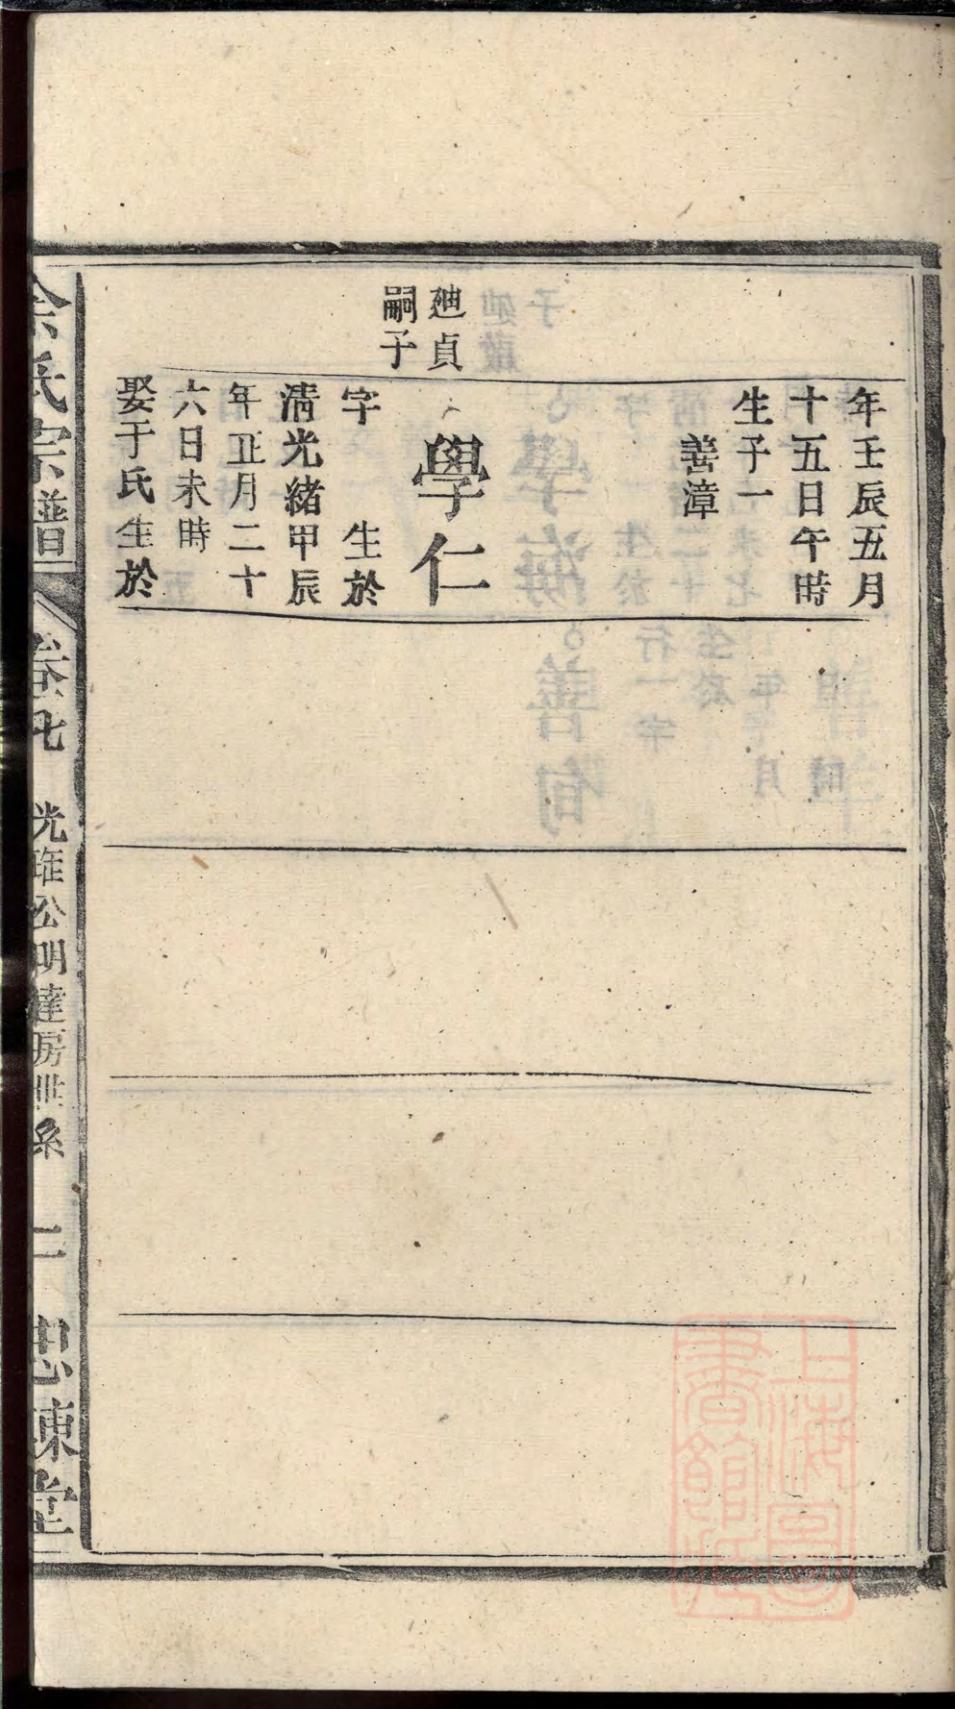 年壬辰五月
十五日午時
生子一
善漳
廸貞
嗣子
學仁
字 生於
清光緒甲辰
年正月二十
六日未時
娶于氏生於
余氏宗譜
卷七
光 公明達房世系
二
忠諫堂
上海圖
書館藏